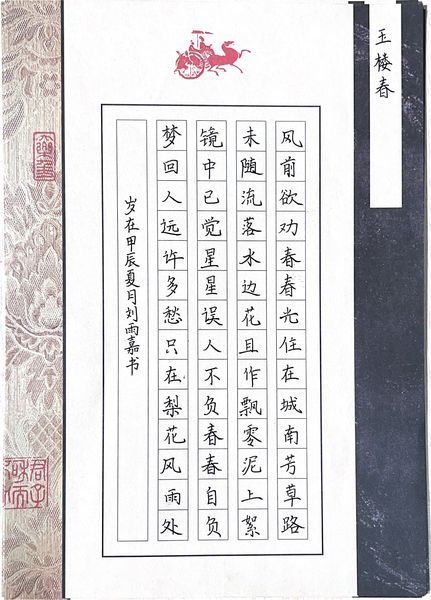 玉楼春
风前欲劝春春光住在城南芳草路
未随流落水边花且作飘零泥上絮
镜中已觉星星误人不负春春自负
梦回人远许多愁只在梨花风雨处
岁在甲辰夏月刘雨嘉书